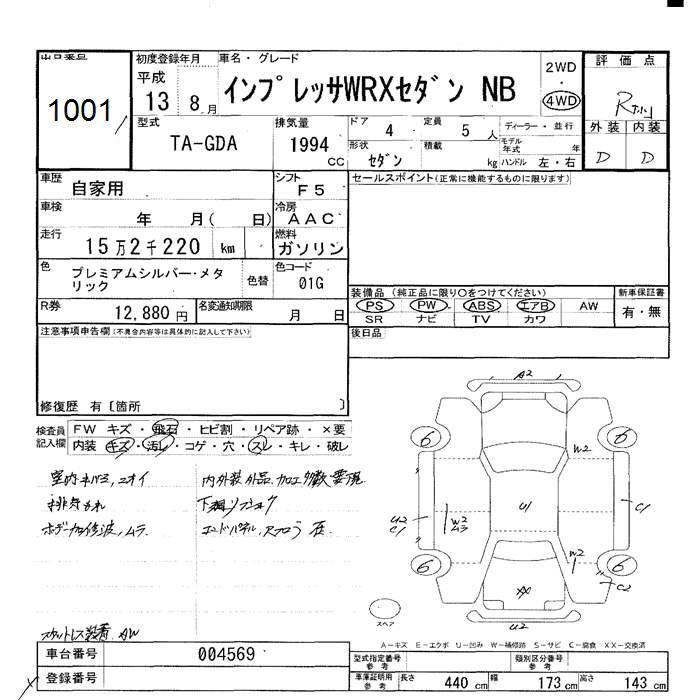 出品番号
1001
初度登録年月
平成
13 8 月
車名・グレード
インプレッサWRXセダン NB
2WD
・
4WD
評価点
R
外装 内装
D D
型式
TA-GDA
排気量
1994
CC
ドア
4
定員
5 人
ディーラー・並行
形状
セダン
積載
kg
モデル年式
年
ハンドル 左・右
車歴
自家用
シフト
F5
セールスポイント(正常に機能するものに限ります)
車検
年 月( 日)
冷房
AAC
走行
15万2千220 km
燃料
ガソリン
色
プレミアムシルバー・メタ
リック
色替
色コード
01G
装備品(純正品に限り○をつけてください)
新車保証書
PS PW ABS エアB AW
SR ナビ TV カワ
有・無
R券
12,880 円
名変通知期限
月 日
後日品
注意事項申告欄(不具合内容等は具体的に記入して下さい)
修復歴 有〔箇所 〕
検査員
記入欄
FW キズ・飛石・ヒビ割・リペア跡・×要
内装・キズ・汚レ・コゲ・穴・スレ・キレ・破レ
室内ネバミ,ニオイ
内外装外品,加工多数要現
排気もれ
ボデー加修波,ムラ
A2
6
6
W2
U2
C1
W2
U3
U1
C1
6
W2
6
C2
XX
U2
スペア
A-キズ E-エクボ U-凹み W-補修跡 S-サビ C-腐食 XX-交換済
AW
車台番号
004569
型式指定番号
参考
類別区分番号
参考
登録番号
車庫証明用
参考
長さ
440 cm
幅
173 cm
高さ
143 cm